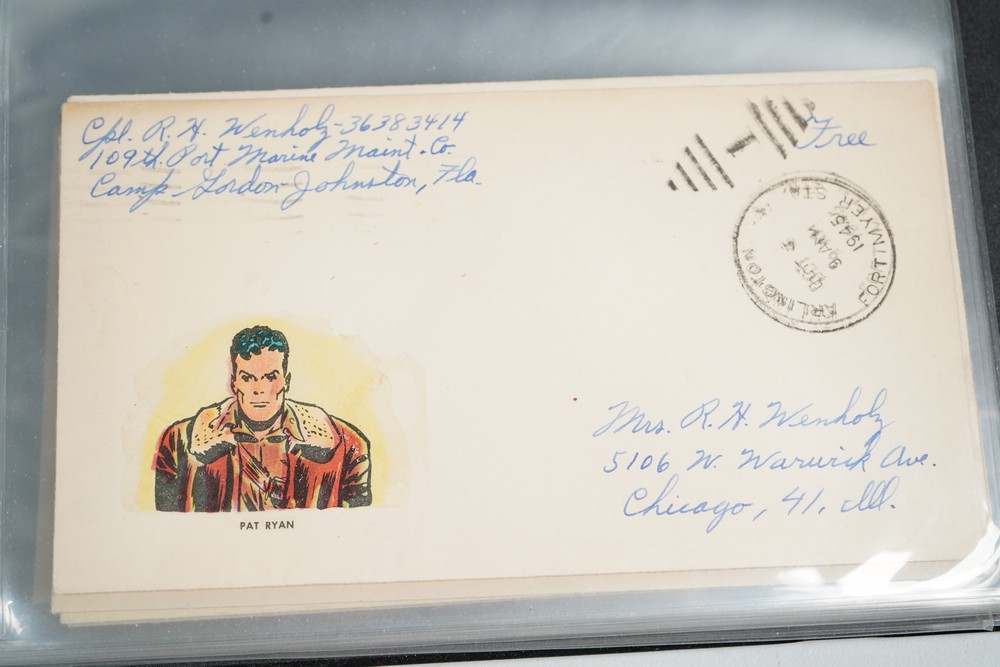 Cpl. R. H. Wenholz-36383414
109th. Port Marine Maint. Co.
Camp Gordon-Johnston, Fla.
Free
ARLINGTON
FORT MYER STA.
OCT
9 AM
1945
PAT RYAN
Mrs. R. H. Wenholz
5106 W. Warwick Ave.
Chicago, 41, Ill.